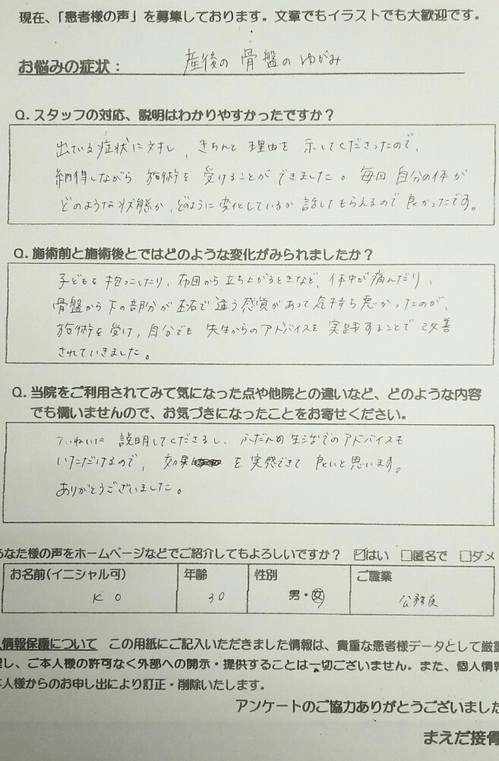 現在、「患者様の声」を募集しております。文章でもイラストでも大歓迎です。
お悩みの症状： 産後の骨盤のゆがみ
Q. スタッフの対応、説明はわかりやすかったですか？
出ている症状に対し、きちんと理由を示してくださったので、
納得しながら施術を受けることができました。毎回自分の体が
どのような状態か、どのように変化しているか話してもらえるので良かったです。
Q. 施術前と施術後とではどのような変化がみられましたか？
子どもを抱っこしたり、布団から立ち上がるときなど、体中が痛んだり、
骨盤から下の部分が左右で違う感覚があって気持ち悪かったのが、
施術を受け、自分でも先生からのアドバイスを実践することで改善
されていきました。
Q. 当院をご利用されてみて気になった点や他院との違いなど、どのような内容
でも構いませんので、お気づきになったことをお寄せください。
ていねいに説明してくださるし、ふだんの生活でのアドバイスも
いただけるので、効果を実感できて良いと思います。
ありがとうございました。
あなた様の声をホームページなどでご紹介してもよろしいですか？ ☑はい □匿名で □ダメ
お名前(イニシャル可) 年齢 性別 ご職業
K O 30 男・女 公務員
人情報保護について この用紙にご記入いただきました情報は、貴重な患者様データとして厳重
理し、ご本人様の許可なく外部への開示・提供することは一切ございません。また、個人情報
本人様からのお申し出により訂正・削除いたします。
アンケートのご協力ありがとうございました
まえだ接骨